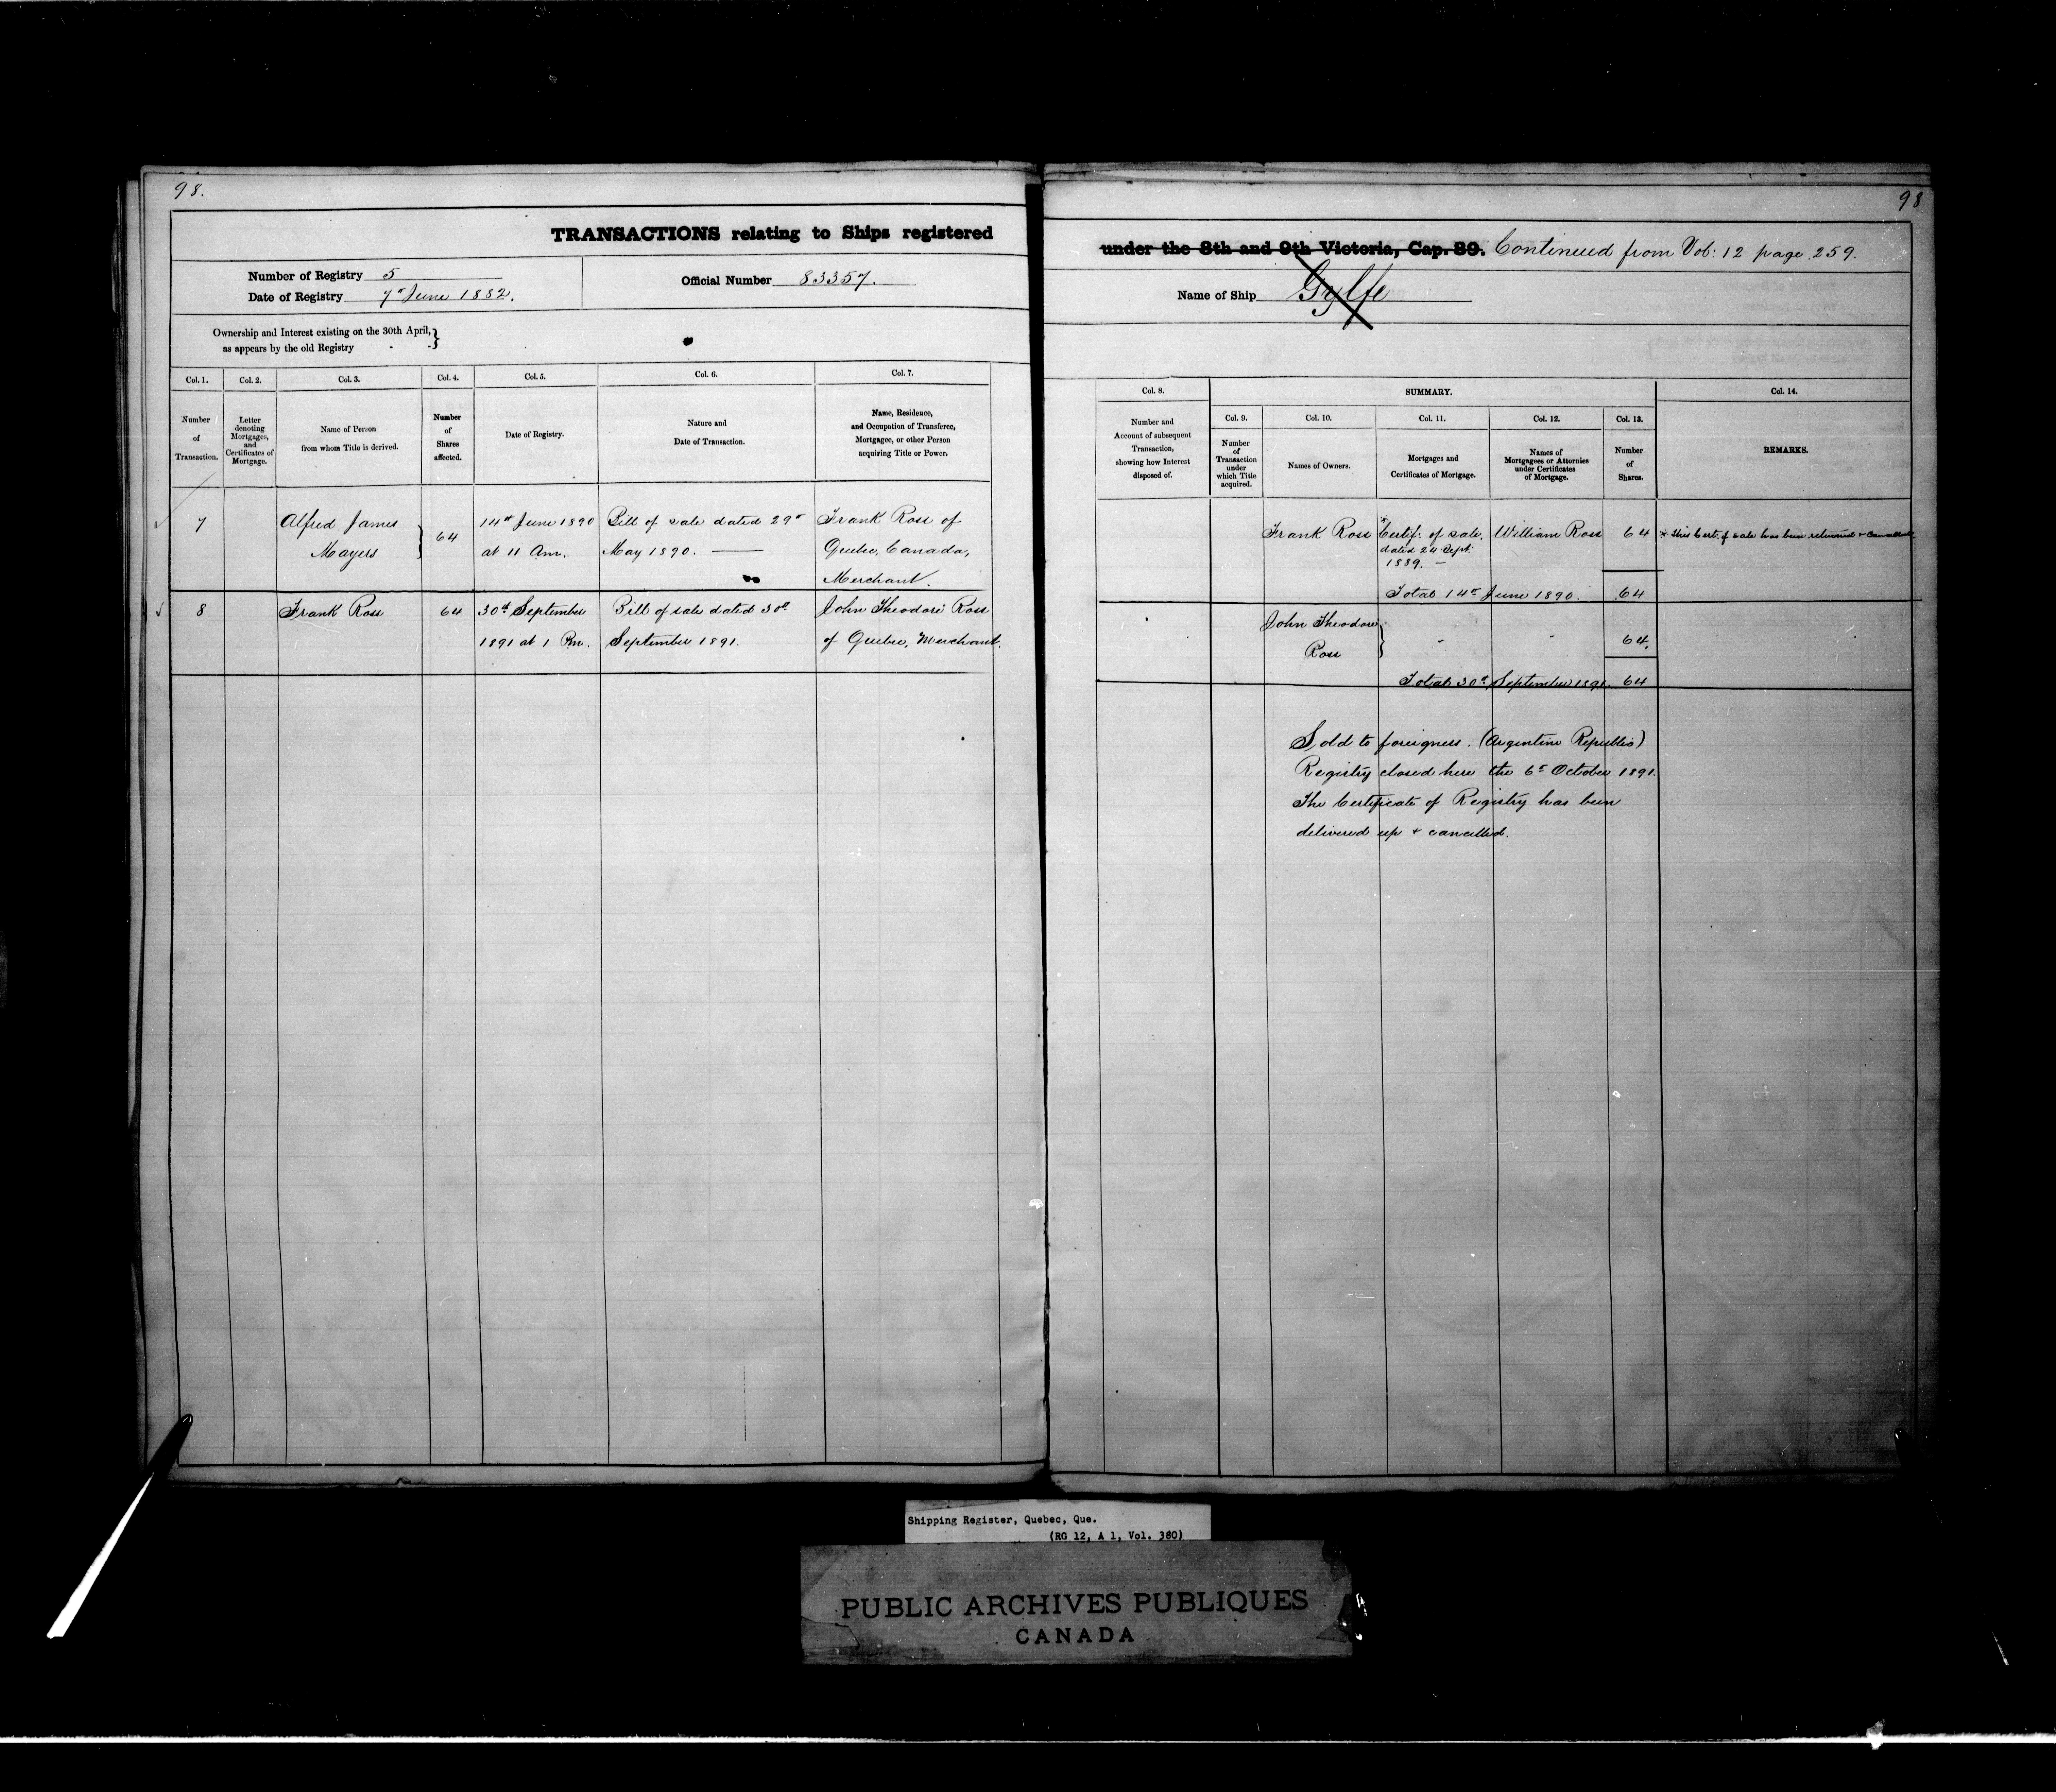 98.
TRANSACTIONS relating to Ships registered
Number of Registry 5
Date of Registry 7th June 1882.
Official Number 83357.
Ownership and Interest existing on the 30th April, }
as appears by the old Registry
Col. 1. Col. 2. Col. 3. Col. 4. Col. 5. Col. 6. Col. 7.
Number
of
Transaction.
Letter
denoting
Mortgages,
and
Certificates of
Mortgage.
Name of Person
from whom Title is derived.
Number
of
Shares
affected.
Date of Registry.
Nature and
Date of Transaction.
Name, Residence,
and Occupation of Transferee,
Mortgagee, or other Person
acquiring Title or Power.
7
Alfred James
Mayers
}
64
14th June 1890
at 11 Am.
Bill of sale dated 29th
May 1890.
Frank Ross of
Quebec, Canada,
Merchant.
8
Frank Ross
64
30th September
1891 at 1 Pm.
Bill of sale dated 30th
September 1891.
John Theodore Ross
of Quebec, Merchant.
98
under the 8th and 9th Victoria, Cap. 89. Continued from Vol: 12 page 259.
Name of Ship Gylfe
Col. 8.
Number and
Account of subsequent
Transaction,
showing how Interest
disposed of.
SUMMARY.
Col. 9. Col. 10. Col. 11. Col. 12. Col. 13.
Number
of
Transaction
under
which Title
acquired.
Names of Owners.
Mortgages and
Certificates of Mortgage.
Names of
Mortgagees or Attornies
under Certificates
of Mortgage.
Number
of
Shares.
Col. 14.
REMARKS.
Frank Ross
*Certif. of sale,
dated 24 Sept.
1889. —
William Ross
64
* This Cert. of sale has been returned + Cancelled
Total 14th June 1890. 64
John Theodore
Ross
}
64.
Total 30th September 1891. 64
Sold to foreigners. (Argentine Republic)
Registry closed here the 6th October 1891.
The Certificate of Registry has been
delivered up + cancelled.
Shipping Register, Quebec, Que.
(RG 12, A 1, Vol. 380)
PUBLIC ARCHIVES PUBLIQUES
CANADA